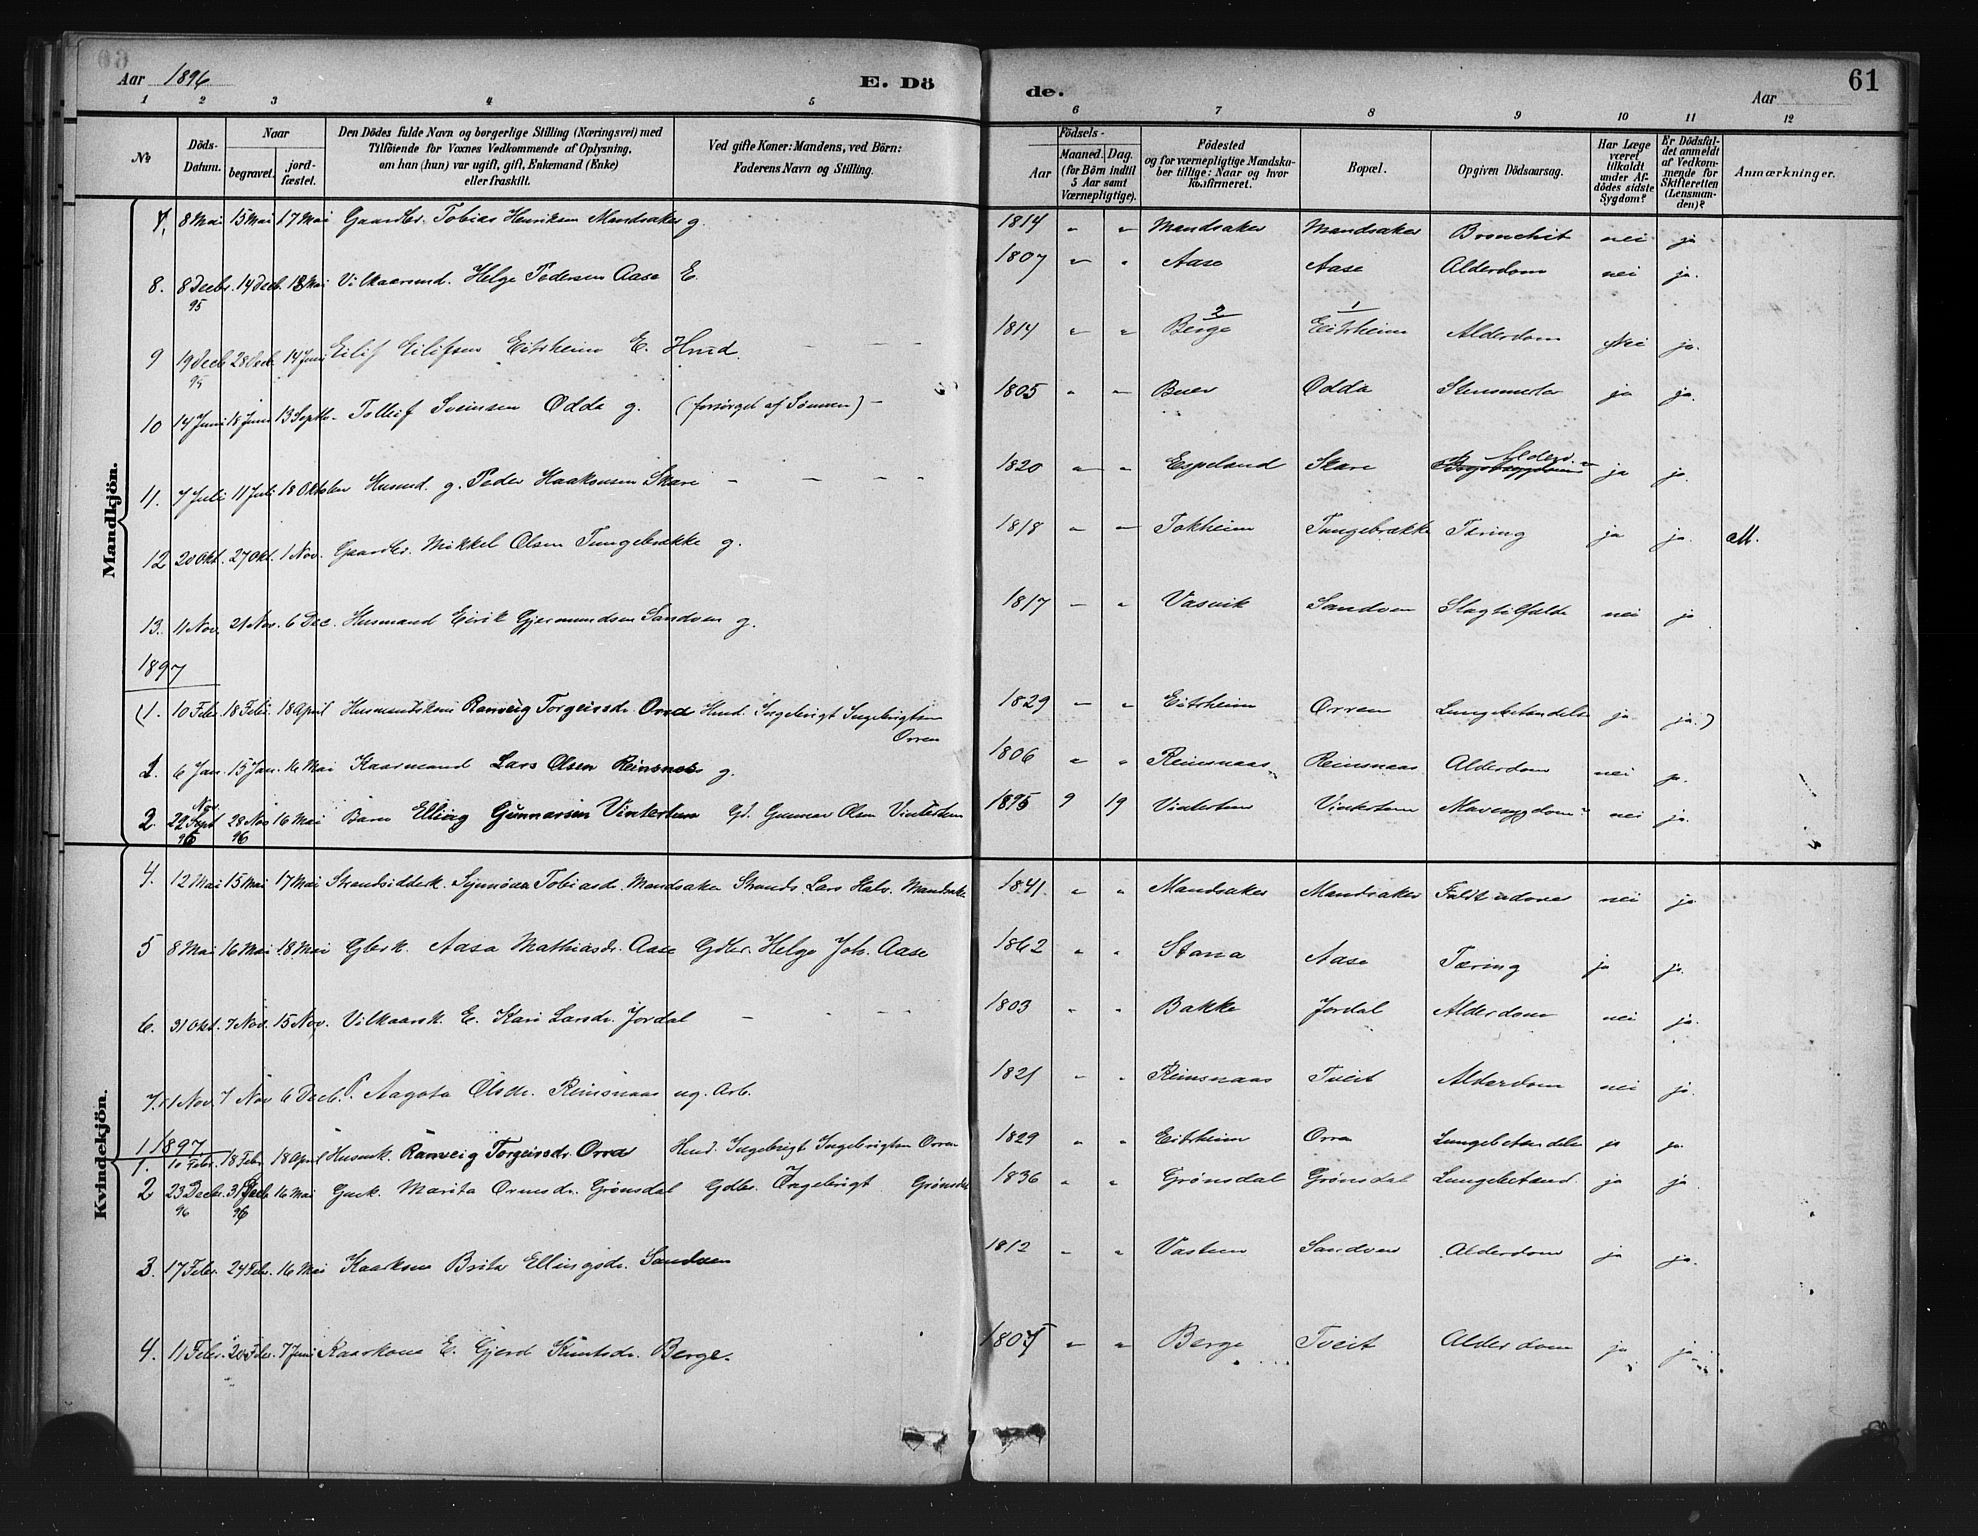 Aar 1896 E. Döde. Aar 61
1 2 3 4 5 6 7 8 9 10 11 12
No Döds-Datum. Naar begravet. jordfæstet. Den Dödes fulde Navn og borgerlige Stilling (Næringsvei) med Tilföiende for Voxnes Vedkommende af Oplysning, om han (hun) var ugift, gift, Enkemand (Enke) eller fraskilt. Ved gifte Koner: Mandens, ved Börn: Faderens Navn og Stilling. Födsels- Aar Maaned. Dag. (for Börn indtil 5 Aar samt Værnepligtige). Födested og for værnepligtige Mandskaber tillige: Naar og hvor konfirmeret. Bopæl. Opgiven Dödsaarsag. Har Læge været tilkaldt under Afdödes sidste Sygdom? Er Dödsfaldet anmeldt af Vedkommende for Skifteretten (Lensmanden)? Anmærkninger.
Mandkjön.
7. 8 Mai 15 Mai 17 Mai Gaardbr. Tobias Henriksen Mandsaker g. 1814 " " Mandsaker Mandsaker Bronchit nei ja
8. 8 Decbr. 14 Decb. 18 Mai Vilkaarsmd. Helge Pedersen Aase E. 1807 " " Aase Aase Alderdom nei ja.
95
9 19 Decb 28 Decb. 14 Juni Eilif Eilifsen Eitrheim E. Hmd. – – – 1814 " " Berge 2 Eitrheim 1 Alderdom Nei ja.
95
10 14 Juni 18 Juni 13 Septb. Tollef Svensen Odda g. (forsörget af Sönnen) – 1805 " " Buer Odda Stensmerter ja ja.
11. 7 Juli 11 Juli 18 Oktober Husmd. g. Peder Haakonsen Skare – – – – 1820 " " Espeland Skare Alderd. ja ja.
12 20 Okt. 27 Okt. 1 Nov. Gaardbr. Mikkel Olsen Tungebrække g. 1818 " " Tokheim Tungebrække Tæring ja ja. M.
13. 11 Nov. 21 Nov. 6 Dec. Husmand Eirik Gjermundsen Sandven g. 1817 – " Vasvik Sandven Slagtilfælde nei ja
1897
(1. 10 Febr. 18 Febr. 18 April Husmandskone Ranveig Torgeirsdr. Orra Hmd. Ingebrigt Ingebrigtsen Orren 1829 – " Eitrheim Orren Lungebetændelse ja ja.)
1. 6 Jan. 15 Jan. 16 Mai Kaarmand Lars Olsen Reinsnos g. 1806 " " Reinsnaas Reinsnaas Alderdom nei ja.
2 22 Nov Sept 28 Nov 16 Mai Barn Elling Gunnarsen Vintertun Gd. Gunnar Olsen Vintertun 1895 9 19 Vintertun Vintertun Mavesygdom nei ja.
96 96
Kvindekjön.
4. 12 Mai 15 Mai 17 Mai Strandsidderk. Synnöva Tobiasd. Mandsaker Strands. Lars Halv. Mandsaker 1841. " " Mandsaker Mandsaker nei ja
5 8 Mai 16 Mai 18 Mai Gbrk. Aasa Mathiasdr. Aase Gdbr. Helge Joh. Aase 1862 " " Stana Aase Tæring ja ja.
6. 31 Okt. 7 Nov. 15 Nov. Vilkaarsk. E. Kari Larsdr. Jordal – – – 1803 " " Bakke Jordal Alderdom nei ja.
7. 1 Nov. 7 Nov 6 Decb. P. Aagota Olsdr. Reinsnaas ug. Arb. 1821 " " Reinsnaas Tveit Alderdom nei ja.
1897
1. 10 Febr. 18 Febr. 18 April Husmk. Ranveig Torgeirsdr. Orra Hmd. Ingebrigt Ingebrigtsen Orren 1829 " " Eitrheim Orra Lungebetændelse ja ja.
2 23 Decbr. 31 Decb. 16 Mai Gaik. Marita Ormsdr. Grönsdal Gdbr. Ingebrigt Grönsdal 1836 " " Grönsdal Grönsdal Lungebetænd ja ja.
96 96
3. 17 Febr. 24 Febr. 16 Mai Kaarkone Brita Ellingsdr. Sandven 1812 " " Vastun Sandven Alderdom ja ja.
4. 11 Febr. 20 Febr. 7 Juni Kaarkone E. Gjerd Knutsdr. Berge. 1807 " " Berge Tveit Alderdom ja ja